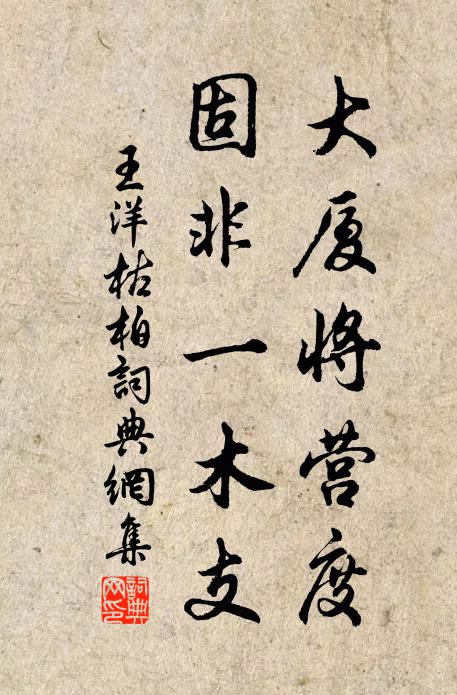 大厦将营度
固非一木支
王洋枯柏詞典網集
詞典
网印